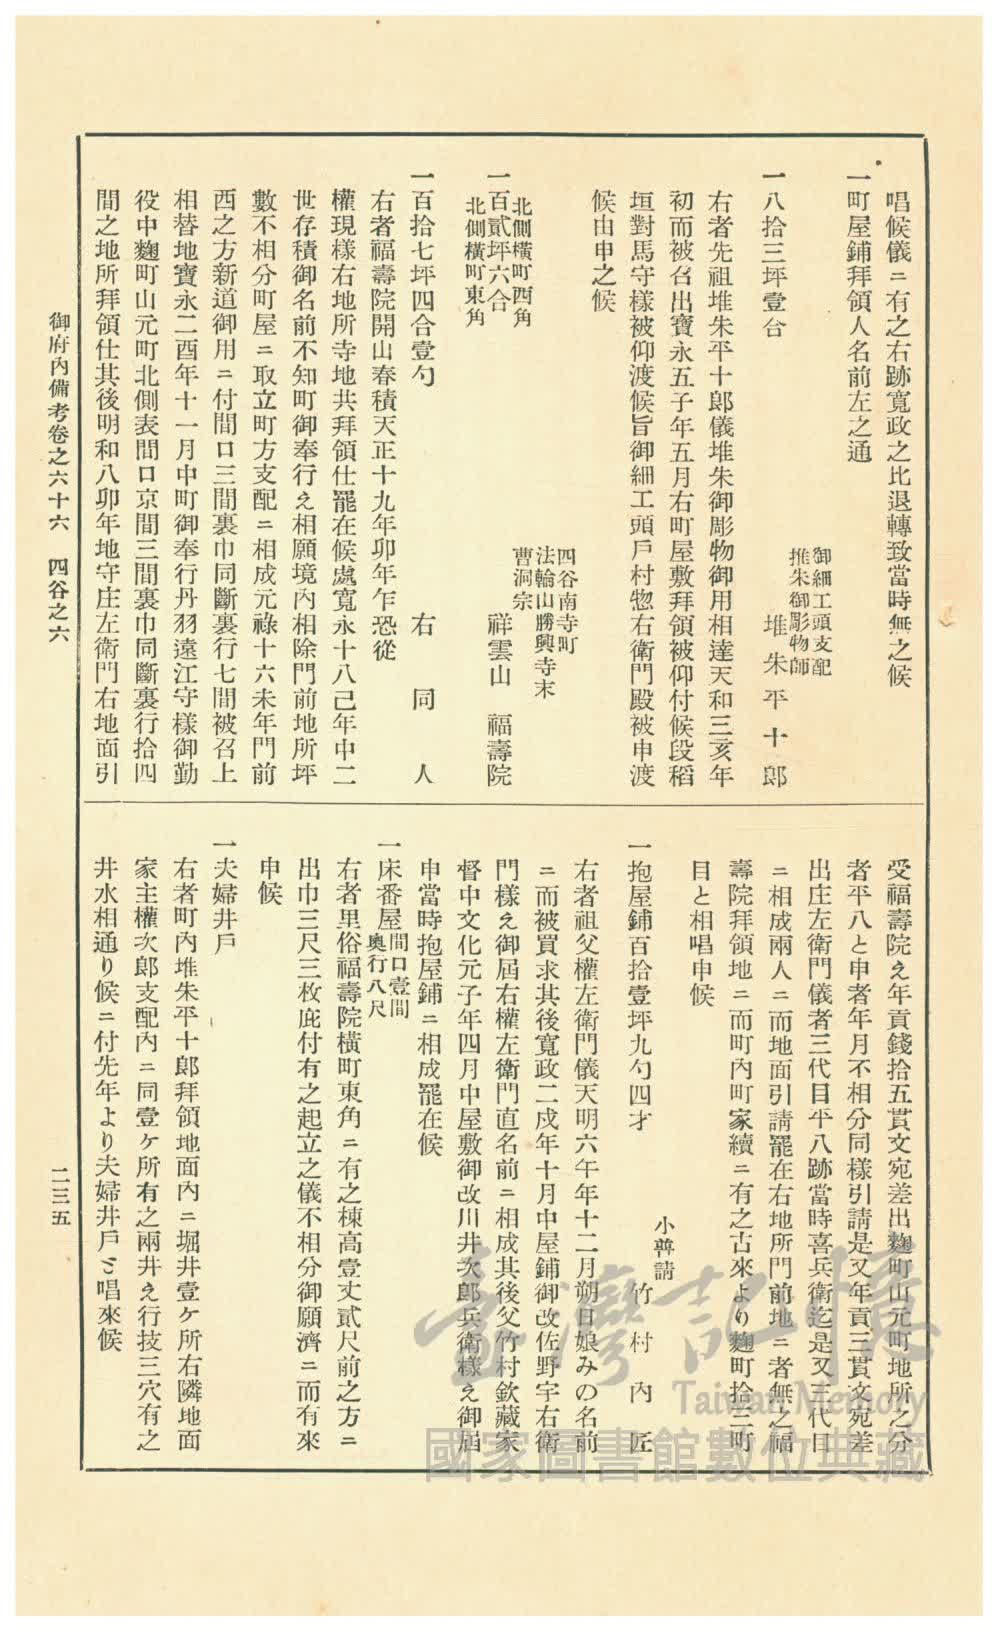 唱候儀ニ有之右跡寬政之比退轉致當時無之候
一町屋鋪拜領人名前左之通
御細工頭支配
推朱御彫物師
一八拾三坪壹合
堆朱平十郞
右者先祖堆朱平十郞儀堆朱御彫物御用相達天和三亥年
初而被召出寶永五子年五月右町屋敷拜領被仰付候段稻
垣對馬守樣被仰渡候旨御細工頭戶村惣右衛門殿被申渡
候由申之候
四谷南寺町
法輪山勝興寺末
曹洞宗
北側橫町西角
一百貳坪六合
北側橫町東角
祥雲山 福壽院
一百拾七坪四合壹勺
右同人
右者福壽院開山春積天正十九年卯年乍恐從
權現樣右地所寺地共拜領仕罷在候處寬永十八己年中二
世存積御名前不知町御奉行え相願境內相除門前地所坪
數不相分町屋ニ取立町方支配ニ相成元祿十六未年門前
西之方新道御用ニ付間口三間裏巾同斷裏行七間被召上
相替地寶永二酉年十一月中町御奉行丹羽遠江守樣御勤
役中麴町山元町北側表間口京間三間裏巾同斷裏行拾四
間之地所拜領仕其後明和八卯年地守庄左衛門右地面引
受福壽院え年貢錢拾五貫文宛差出麴町山元町地所之分
者平八と申者年月不相分同樣引請是又年貢三貫文宛差
出庄左衛門儀者三代目平八跡當時喜兵衛迄是又三代目
ニ相成兩人ニ而地面引請罷在右地所門前地ニ者無之福
壽院拜領地ニ而町內町家續ニ有之古來より麴町拾三町
目と相唱申候
小普請
一抱屋鋪百拾壹坪九勺四才
竹村內匠
右者祖父權左衛門儀天明六午年十二月朔日娘みの名前
ニ而被買求其後寬政二戍年十月中屋鋪御改佐野宇右衛
門樣え御屆右權左衛門直名前ニ相成其後父竹村欽藏家
督中文化元子年四月中屋敷御改川井次郞兵衛樣え御屆
申當時抱屋鋪ニ相成罷在候
一床番屋 間口壹間
奧行八尺
右者里俗福壽院橫町東角ニ有之棟高壹丈貳尺前之方ニ
出巾三尺三枚庇付有之起立之儀不相分御願濟ニ而有來
申候
一夫婦井戶
右者町內堆朱平十郞拜領地面內ニ堀井壹ケ所右隣地面
家主權次郞支配內ニ同壹ケ所有之兩井え行技三穴有之
井水相通り候ニ付先年より夫婦井戶と唱來候
御府內備考卷之六十六 四谷之六
二三五
臺灣記憶
Taiwan Memory
國家圖書館數位典藏